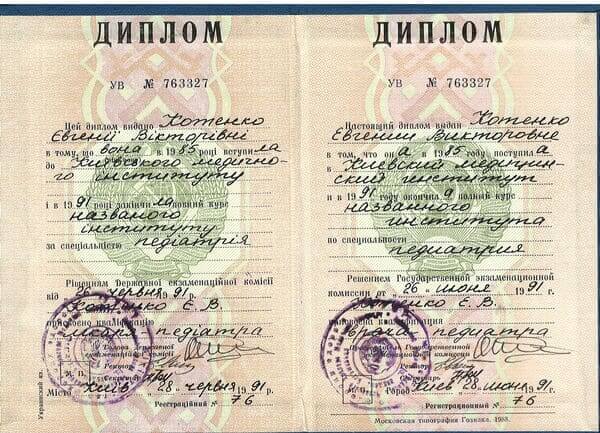 ДИПЛОМ
УВ № 763327
Цей диплом видано Котенко
Євгенії Вікторівні
в тому, що вона в 1985 вступила
до Київського медично-
го інституту
і в 1991 році закінчила повний курс
названого
інституту
за спеціальністю педіатрія
Рішенням Державної екзаменаційної комісії
від 26 червня 1991
Котенко Є. В.
присвоєно кваліфікацію
лікаря педіатра
Голова державної
екзаменаційної комісії
Ректор
Секретар
М. П.
Місто Київ 28 червня 1991
Реєстраційний № 76
Украинский яз.
ДИПЛОМ
УВ № 763327
Настоящий диплом выдан Котенко
Евгении Викторовне
в том, что она в 1985 году поступила в
Киевский медицин-
ский институт
и в 1991 году окончила полный курс
названного
института
по специальности
педиатрия
Решением Государственной экзаменационной
комиссии от 26 июня 1991
Котенко Е. В.
присвоена квалификация
врача педиатра
Председатель Государственной
экзаменационной комиссии
Ректор
Секретарь
М. П.
Город Киев 28 июня 1991
Регистрационный № 76
Московская типография Гознака. 1988.